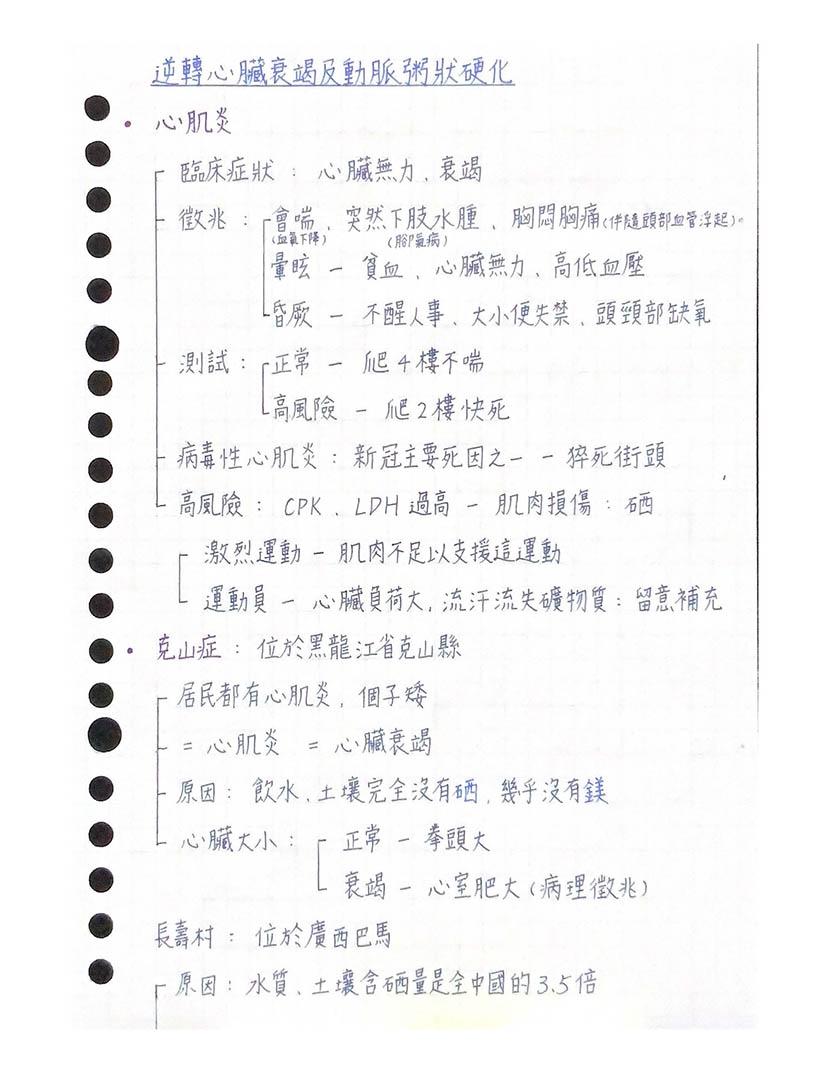 逆轉心臟衰竭及動脈粥狀硬化
• 心肌炎
臨床症狀：心臟無力、衰竭
徵兆：會喘、突然下肢水腫、胸悶胸痛(伴隨頭部血管浮起)。
(血氧下降) (腳氣病)
暈眩 — 貧血、心臟無力、高低血壓
昏厥 — 不醒人事、大小便失禁、頭頸部缺氧
測試：正常 — 爬4樓不喘
高風險 — 爬2樓快死
病毒性心肌炎：新冠主要死因之一 - 猝死街頭
高風險：CPK、LDH過高 — 肌肉損傷：硒
激烈運動 — 肌肉不足以支援這運動
運動員 — 心臟負荷大，流汗流失礦物質：留意補充
• 克山症：位於黑龍江省克山縣
居民都有心肌炎，個子矮
= 心肌炎 = 心臟衰竭
原因：飲水、土壤完全沒有硒，幾乎沒有鎂
心臟大小：正常 — 拳頭大
衰竭 — 心室肥大(病理徵兆)
長壽村：位於廣西巴馬
原因：水質、土壤含硒量是全中國的3.5倍